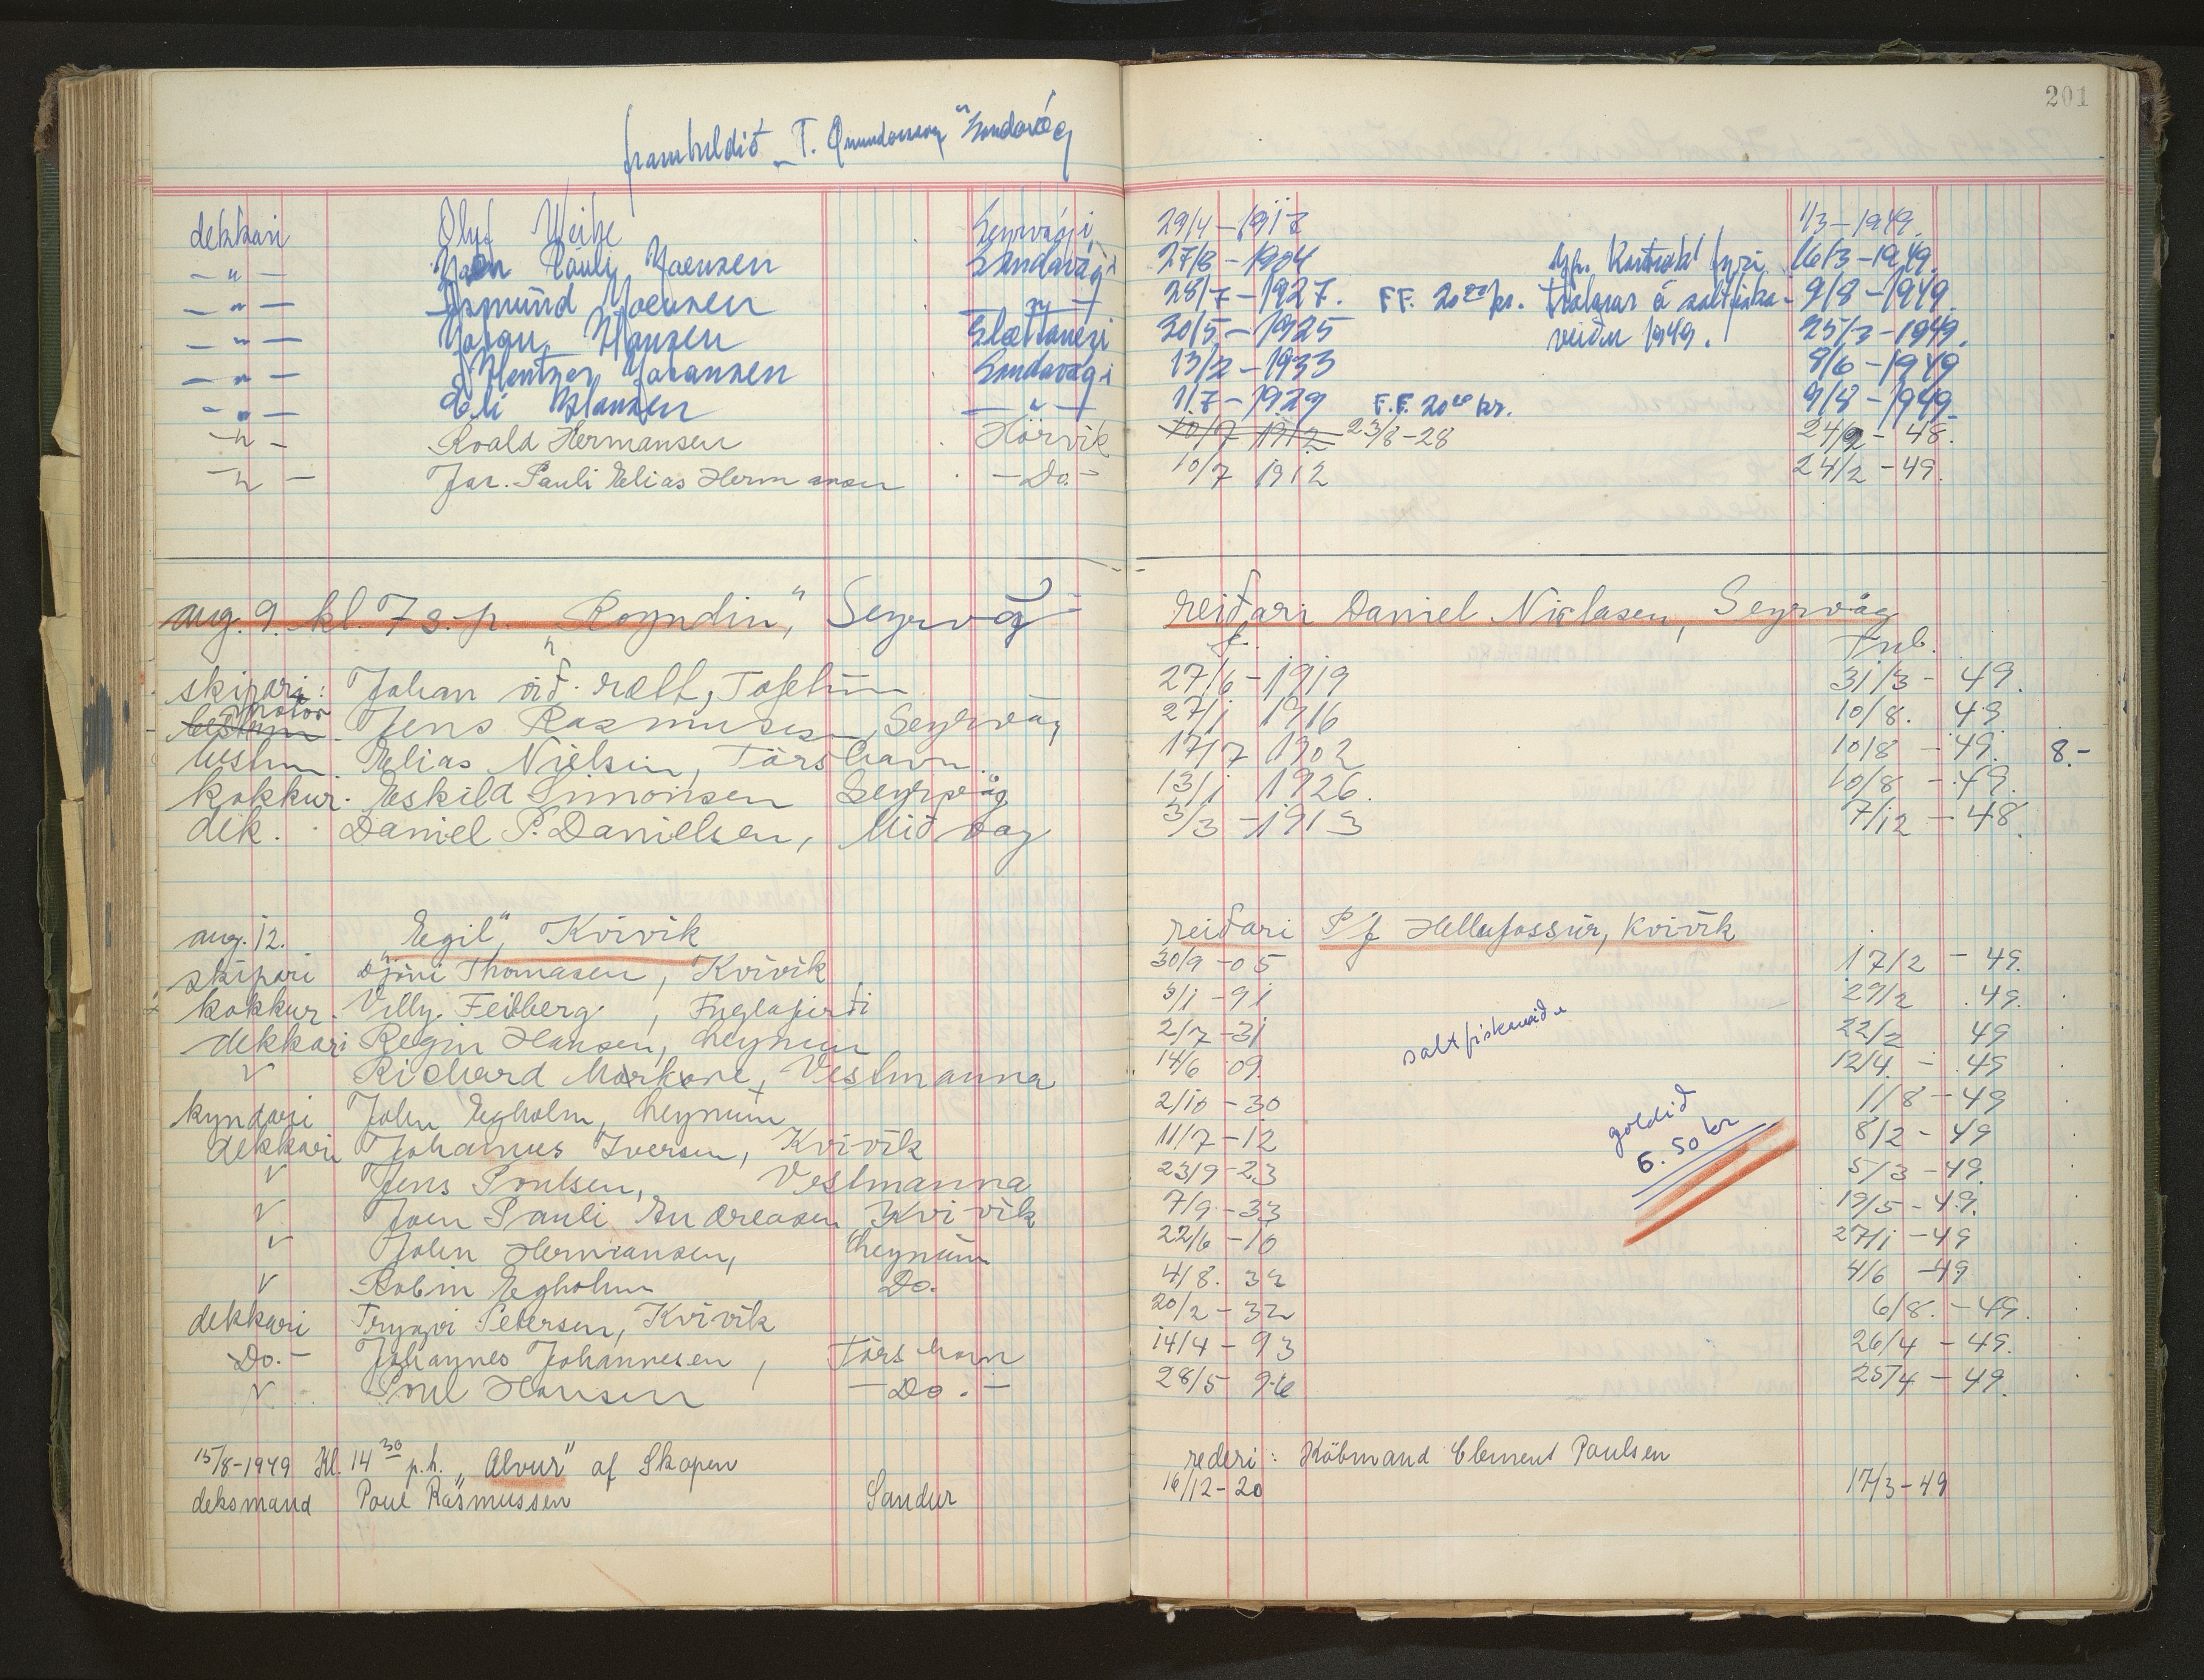 201
framhuldið „T. Qmundarsson" Sandavág
dekkari Oluf Weihe Seyrvági 29/4 - 1917 1/3 - 1949.
- " - Joen Pauli Joensen Sandavági 27/8 - 1904 Kontrakt fyri 16/3 - 1949.
- " - Asmund Joensen - " - 28/7 - 1927. F.F. 20 kr. trolarar á saltfiska- 9/8 - 1949.
- " - Johan Hansen Slættanesi 30/5 - 1925 veiðu 1949. 25/3 - 1949.
- " - Johansen Sandavági 13/2 - 1933 9/6 - 1949
- " - Eli Hansen - " - 1/7 - 1929 F.F. 20 kr. 9/8 - 1949.
- " - Roald Hermansen Hörvik 10/7 1912 23/8 - 28 24/2 - 48.
- " - Jar. Pauli Elias Hermansen - Do. - 10/7 1912 24/2 - 49.
aug. 9. kl. 7 s.p. „Royndin", Seyrvåg reiðari Daniel Niclasen, Seyrvåg
f. fnb.
skipari: Johan 27/6 - 1919 31/3 - 49.
bestm motor Jens Rasmussen, Seyrvåg 27/1 1916 10/8. 49
bestm. Elias Nielsen, Tórshavn 17/7 1902 10/8 - 49. 8.-
kokkur. Eskild Simonsen Seyrvåg 13/1 1926. 10/8 - 49.
dek. Daniel P. Danielsen, Miðvag 3/3 - 1913 7/12 - 48.
aug. 12. „Egil", Kvívík reiðari P/f Hellufossur, Kvívík
skipari Djóni Thomasen, Kvívík 30/9 - 05 17/2 - 49.
kokkur. Villy Feilberg, Fuglafirði 3/1 - 91 29/2 . 49.
dekkari Regin Hansen, Leynum 2/7 - 31 saltfiskaveiðu 22/2 49
v Richard Morkore, Vestmanna 14/6 09. 12/4. - 49
kyndari John Egholm, Leynum 2/10 - 30 goldið 11/8 - 49
dekkari Johannus Iversen, Kvívík 11/7 - 12 6.50 kr 8/2 - 49
v Jens Poulsen, Vestmanna 23/9 - 23 5/3 - 49.
v Joen Pauli Andreasen Kvívík 7/9 - 33 19/5 - 49.
v John Hermansen, Leynum 22/6 - 10 27/1 - 49
v Robin Egholm Do. 4/8. 32 4/6 - 49
dekkari Tryggvi Petersen, Kvívík 20/2 - 32 6/8. - 49.
Do. - Johannes Johannesen, Tórshavn 14/4 - 93 26/4 - 49.
v Poul Hansen - Do. - 28/5 96 25/4 - 49.
15/8-1949 Kl. 14 30 p.h. „Alvur" af Skopen rederi: Köbmand Clement Paulsen
deksmand Poul Rasmussen Sandur 16/12 - 20 17/3 - 49